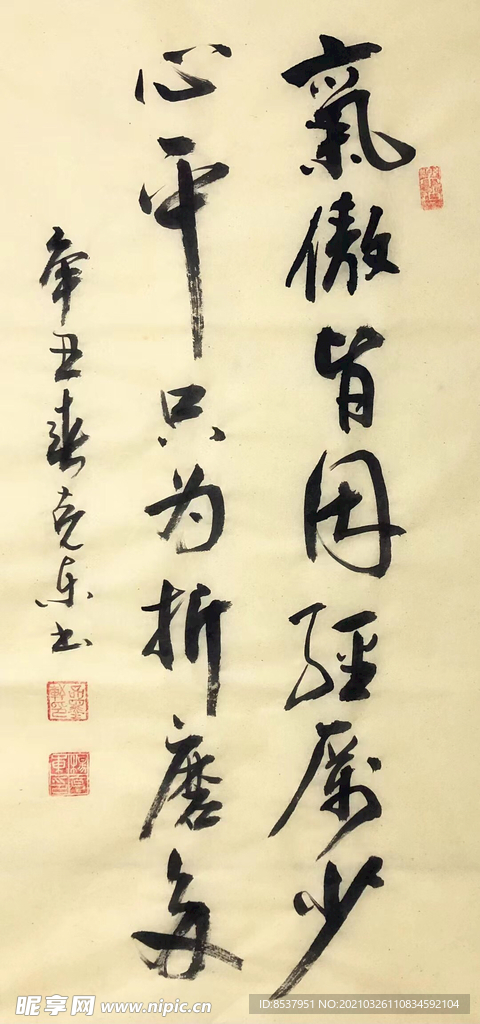 氣傲皆因經厲少
心平只为折磨多
辛丑春克东书
昵享网 www.nipic.cn
ID:8537951 NO:20210326110834592104